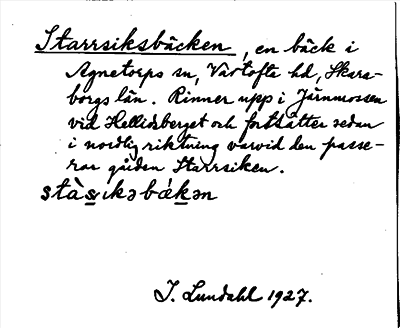 Starrsiksbäcken, en bäck i
Agnetorps sn, Vartofta hd, Skara-
borgs län. Rinner upp i Järnmossen
vid Hellidsberget och fortsätter sedan
i nordlig riktning varvid den passe-
rar gården Starrsiken.
stàs̲ıkəbák̲ən
I. Lundahl 1927.